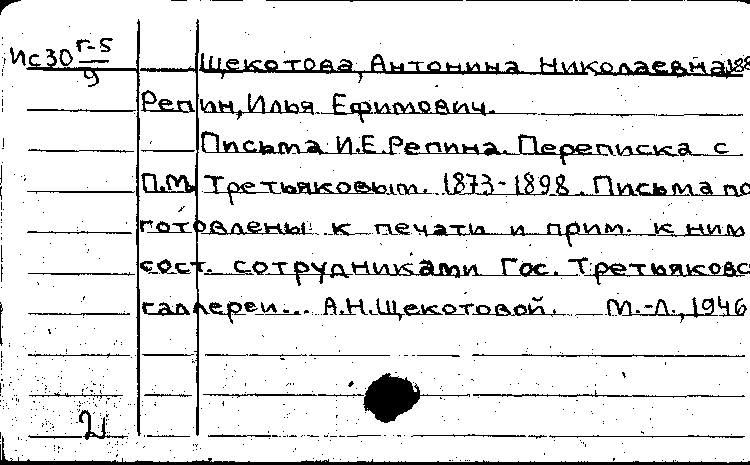 Ис30 г-5/9
Щекотова, Антонина Николаевна, 188
Репин, Илья Ефимович.
Письма И.Е.Репина. Переписка с
П.М. Третьяковым. 1873-1898. Письма по
готовлены к печати и прим. к ним
сост. сотрудниками Гос. Третьяковс
галлереи... А.Н.Щекотовой. М.-Л., 1946